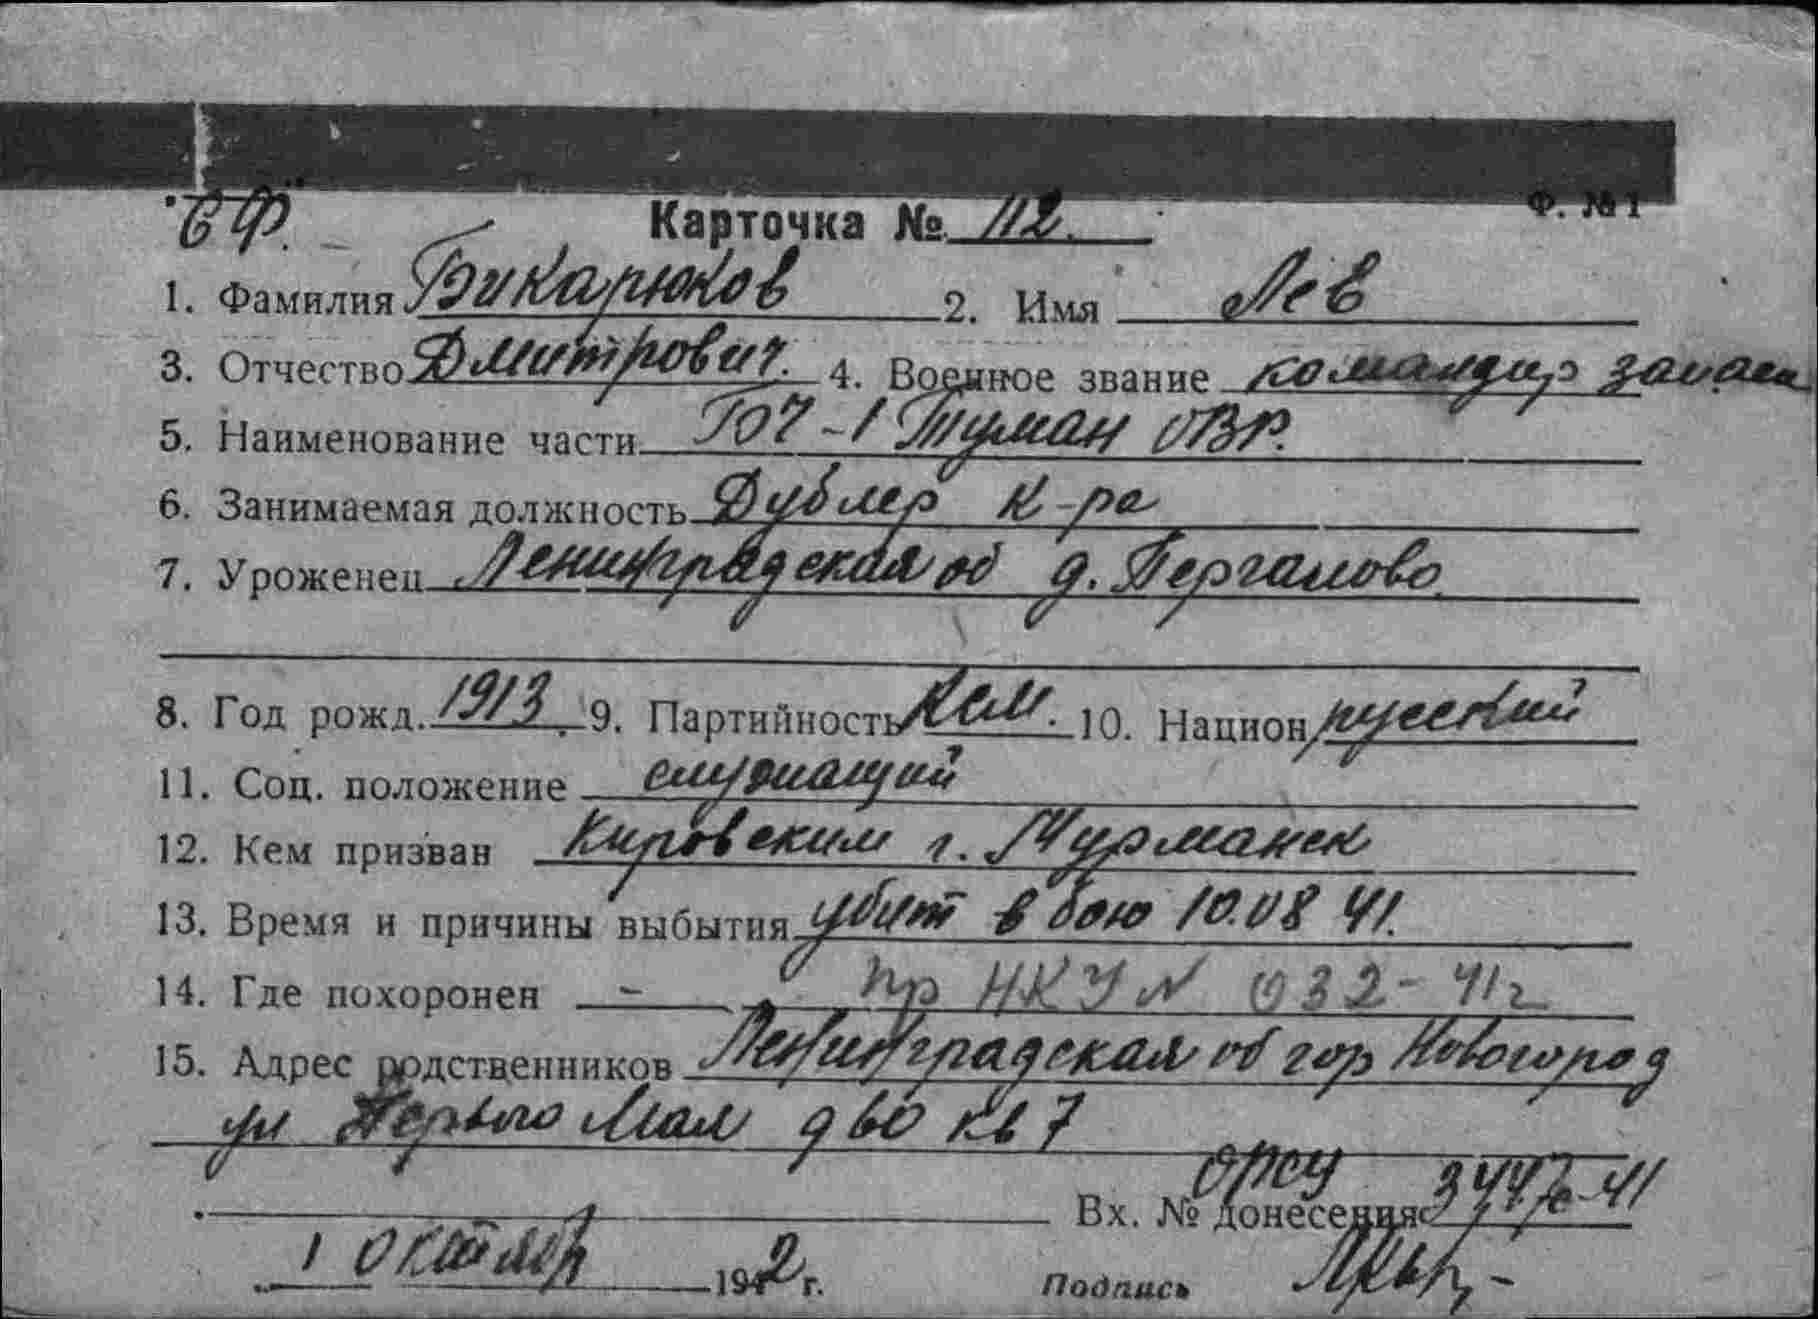 СФ.
Ф. №1
Карточка № 112.
1. Фамилия Бикарюков 2. Имя Лев
3. Отчество Дмитрович. 4. Военное звание командир запаса
5. Наименование части -1 Туман ОВР.
6. Занимаемая должность Дублер к-ра
7. Уроженец Ленинградская об д. Пергамово.
8. Год рожд. 1913. 9. Партийность КСМ. 10. Национ русский
11. Соц. положение служащий
12. Кем призван Кировским г. Мурманск
13. Время и причины выбытия убит в бою 10.08 41.
14. Где похоронен - пр НКУ N 032-41г
15. Адрес родственников Ленинградская об гор Новогород
ул Первого Мая д 60 кв 7
орсу
Вх. № донесения 3447с-41
1 октября 1942 г. Подпись